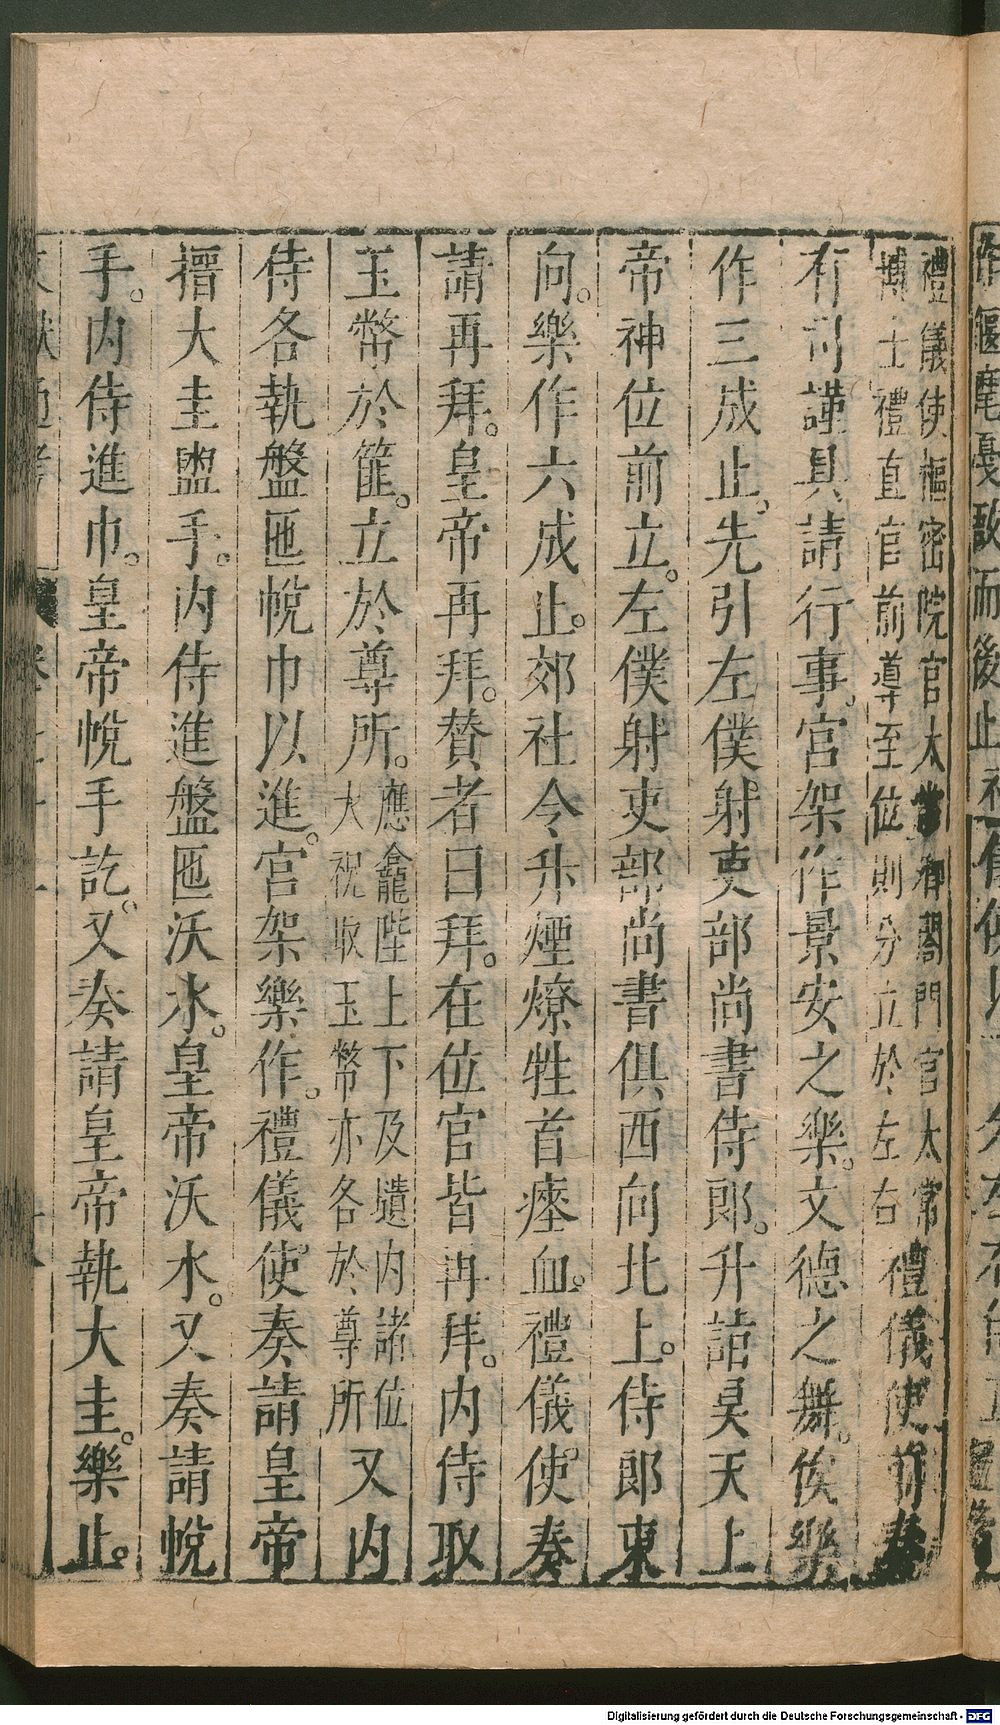 禮儀使樞密院官太常卿閤門官太常
博士禮直官前導至位則分立於左右
禮儀使前奏
有司謹具請行事。宮架作景安之樂。文德之舞。俟樂
作三成止。先引左僕射吏部尚書侍郎。升詣昊天上
帝神位前立。左僕射吏部尚書俱西向北上。侍郎東
向。樂作六成止。郊社令升煙燎牲首瘞血。禮儀使奏
請再拜。皇帝再拜。贊者曰拜。在位官皆再拜。內侍取
玉幣於篚。立於尊所。
應龕陛上下及壝內諸位
太祝取玉幣亦各於尊所
又內
侍各執盤匜帨巾以進。宮架樂作。禮儀使奏請皇帝
搢大圭盥手。內侍進盤匜沃水。皇帝沃水。又奏請帨
手。內侍進巾。皇帝帨手訖。又奏請皇帝執大圭。樂止。
Digitalisierung gefördert durch die Deutsche Forschungsgemeinschaft - DFG